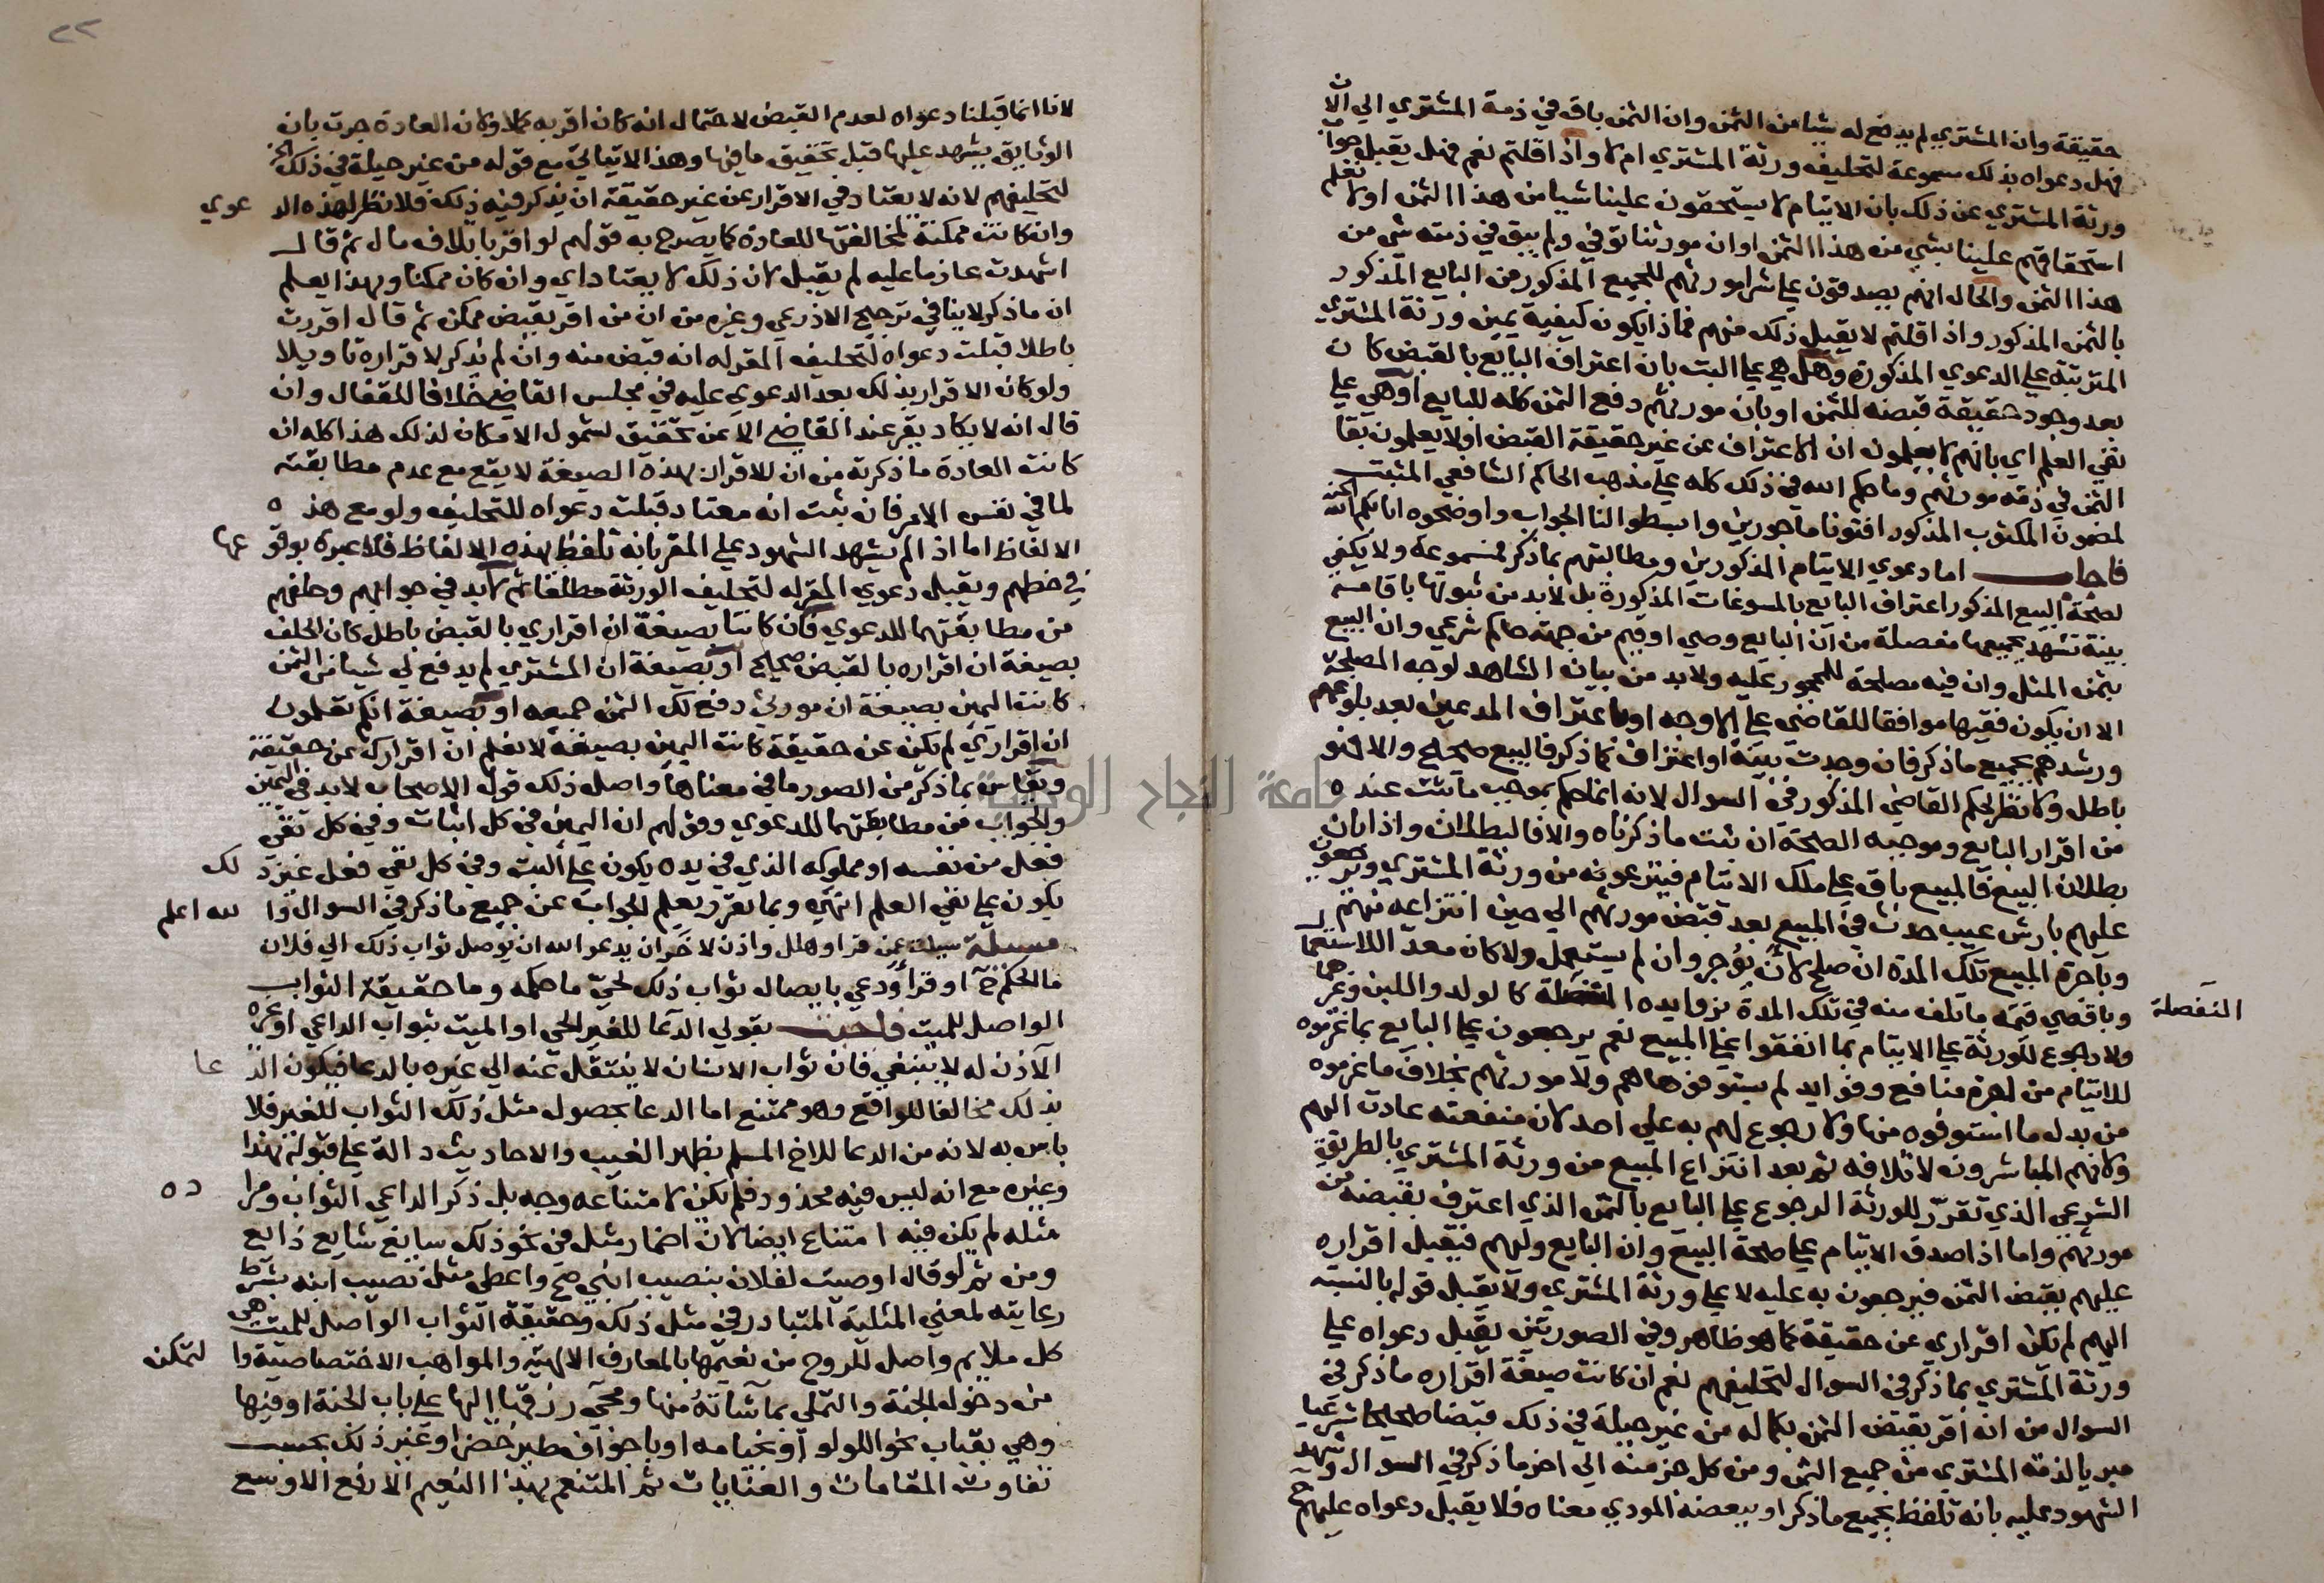 حقيقة وان المشتري لم يدفع له شيا من الثمن وان الثمن باق في ذمة المشتري الي الان
فهل دعواه بذلك مسموعة لتحليف ورثة المشتري ام لا واذا قلتم نعم فهل يقبل جواب
ورثة المشتري عن ذلك بان الايتام لا يستحقون علينا شيا من هذا الثمن او لا نعلم
استحقاقهم علينا بشي من هذا الثمن او ان مورثنا توفي ولم يبق في ذمته شي من
هذا الثمن والحال انهم يصدقون علي شرا مورثهم للمبيع المذكور من البايع المذكور
بالثمن المذكور واذا قلتم لا يقبل ذلك منهم فماذا يكون كيفية يمين ورثة المشتري
المترتبة علي الدعوي المذكورة وهل هي علي البت بان اعتراف البايع بالقبض كان
بعد وجود حقيقة قبضه للثمن او بان مورثهم دفع الثمن كله للبايع او هي علي
نفي العلم اي بانهم لا يعلمون ان الاعتراف عن غير حقيقة القبض او لا يعلمون بقا
الثمن في ذمة مورثهم وما حكم الله في ذلك كله علي مذهب الحاكم الشافعي المثبت
لمضمون المكتوب المذكور افتونا ماجورين وابسطوا لنا الجواب واوضحوه اثابكم الله الجنة
فاجاب اما دعوي الايتام المذكورين ومطالبتهم بما ذكر فمسموعة ولا يكفي
لصحة البيع المذكور اعتراف البايع بالمسوغات المذكورة بل لا بد من ثبوتها باقامة
بينة تشهد بجميعها مفصلة من ان البايع وصي او قيم من جهة حاكم شرعي وان البيع
بثمن المثل وان فيه مصلحة للمحجور عليه ولا بد من بيان الشاهد لوجه المصلحة
الا ان يكون فقيها موافقا للقاضي علي الاوجه او باعتراف المدعين بعد بلوغهم
ورشدهم بجميع ما ذكر فان وجدت بينة او اعتراف بما ذكر فالبيع صحيح والا فهو
باطل ولا نظر لحكم القاضي المذكور في السوال لانه انما حكم بموجب ما ثبت عنده
من اقرار البايع وموجبه الصحة ان ثبت ما ذكرناه والا فالبطلان واذا بان
بطلان البيع فالمبيع باق علي ملك الايتام فينزعونه من ورثة المشتري ويرجعون
عليهم بارش عيب حدث في المبيع بعد قبض مورثهم الي حين انتزاعه منهم
وباجرة المبيع تلك المدة ان صلح لان يؤجر وان لم يستعمل ولا كان معدا للاستعمال
وباقصي قيمة ما تلف منه في تلك المدة بزوايده كالولد واللبن وغيرهما
المنفصلة
ولا رجوع للورثة علي الايتام بما انفقوا علي المبيع نعم يرجعون علي البايع بما غرموه
للايتام من اجرة منافع وفوايد لم يستوفوها هم ولا مورثهم بخلاف ما غرموه
من بدل ما استوفوه منها ولا رجوع لهم به علي احد لان منفعته عادت اليهم
ولانهم المباشرون لاتلافه ثم بعد انتزاع المبيع من ورثة المشتري بالطريق
الشرعي الذي تقرر للورثة الرجوع علي البايع بالثمن الذي اعترف بقبضه من
مورثهم واما اذا صدق الايتام علي صحة البيع وان البايع وليهم فيقبل اقراره
عليهم بقبض الثمن فيرجعون به عليه لا علي ورثة المشتري ولا يقبل قوله بالنسبة
اليهم لم يكن اقراري عن حقيقة كما هو ظاهر وفي الصورتين يقبل دعواه علي
ورثة المشتري بما ذكر في السوال لتحليفهم نعم ان كانت صيغة اقراره ما ذكر في
السوال من انه اقر بقبض الثمن بكماله من غير حيلة في ذلك قبضا صحيحا شرعيا
مبريا لذمة المشتري من جميع الثمن ومن كل جزء منه الي اخر ما ذكر في السوال وشهد
الشهود عليه بانه تلفظ بجميع ما ذكر او ببعضه المودي معناه فلا يقبل دعواه عليهم
٢٢
لانا انما قبلنا دعواه لعدم القبض لاحتمال انه كان اقر به كملا وكان العادة جرت بان
الوثايق يشهد عليها قبل تحقيق ما فيها وهذا لا يتاتي مع قوله من غير حيلة في ذلك
لتحليفهم لانه لا يعتاد في الاقرار عن غير حقيقة ان يذكر فيه ذلك فلا نظر لهذه الدعوي
وان كانت ممكنة لمخالفتها للعادة كما يصرح به قولهم لو اقر باتلافه مال ثم قال
اشهدت عازما عليه لم يقبل لان ذلك لا يعتاد اي وان كان ممكنا وبهذا يعلم
ان ما ذكر لا ينافي ترجيح الاذرعي وغيره من ان من اقر بقبض ممكن ثم قال اقررت
باطلا قبلت دعواه لتحليف المقر له انه قبض منه وان لم يذكر لاقراره تاويلا
ولو كان الاقرار بذلك بعد الدعوي عليه في مجلس القاضي خلافا للقفال وان
قال انه لا يكاد يقر عند القاضي الا عن تحقيق لشمول الامكان لذلك هذا كله ان
كانت العادة ما ذكرته من ان للاقرار بهذه الصيغة لا يقع مع عدم مطابقته
لما في نفس الامر فان ثبت انه معتاد قبلت دعواه للتحليف ولو مع هذه
الالفاظ اما اذا لم يشهد الشهود علي المقر بانه تلفظ بهذه الالفاظ فلا عبرة بوقوعها
في خطهم ويقبل دعوي المقر له لتحليف الورثة مطلقا ثم لا بد في جوابهم وحلفهم
من مطابقتهما للدعوي فان كانتا بصيغة ان اقراري بالقبض باطل كان الحلف
بصيغة ان اقراره بالقبض صحيح او بصيغة ان المشتري لم يدفع لي شيا من الثمن
كانت اليمين بصيغة ان مورثي دفع لك الثمن جميعه او بصيغة انكم تعلمون
ان اقراري لم يكن عن حقيقة كانت اليمين بصيغة لا نعلم ان اقرارك عن حقيقة
ويقاس بما ذكر من الصور ما في معناها واصل ذلك قول الاصحاب لا بد في اليمين
والجواب من مطابقتهما للدعوي وقولهم ان اليمين في كل اثبات وفي كل نفي
فعل من نفسه او مملوكه الذي في يده يكون علي البت وفي كل نفي فعل غير ذلك
يكون علي نفي العلم انتهي وبما تقرر يعلم الجواب عن جميع ما ذكر في السوال والله اعلم
مسيلة سيلت عن قرا وهلل واذن لاخر ان يدعو الله ان يوصل ثواب ذلك الي فلان
ما الحكم او قرا ودعي بايصال ثواب ذلك لحي ما حكمه وما حقيقة الثواب
الواصل للميت فاجبت بقولي الدعا للغير الحي او الميت بثواب الداعي او غيره
الاذن له لا ينبغي فان ثواب الانسان لا ينتقل عنه الي غيره بالدعا فيكون الدعا
بذلك مخالفا للواقع وهو ممتنع اما الدعا بحصول مثل ذلك الثواب للغير فلا
باس به لانه من الدعا للاخ المسلم بظهر الغيب والاحاديث دالة علي قبوله في هذا
وغيره مع انه ليس فيه محذور فلم يكن لامتناعه وجه بل ذكر الداعي الثواب ومراده
مثله لم يكن فيه امتناع ايضا لان اضمار مثل في نحو ذلك سايغ شايع ذايع
ومن ثم لو قال اوصيت لفلان بنصيب ابني صح واعطي مثل نصيب ابنه بشرط
رعايته لمعني المثلية المتبادر في مثل ذلك وحقيقة الثواب الواصل للميت هي
كل ملايم واصل للروح من نعيمها بالمعارف الالهية والمواهب الاختصاصية والتمكن
من دخول الجنة والتملي بما شاته منها ومجي رزقها اليها علي باب الجنة او فيها
وهي بقباب نحو اللولو او بخيامه او باجواف طير خضر او غير ذلك بحسب
تفاوت المقامات والعنايات ثم المتنعم بهذا النعيم الارفع الاوسع
جامعة النجاح الوطنية